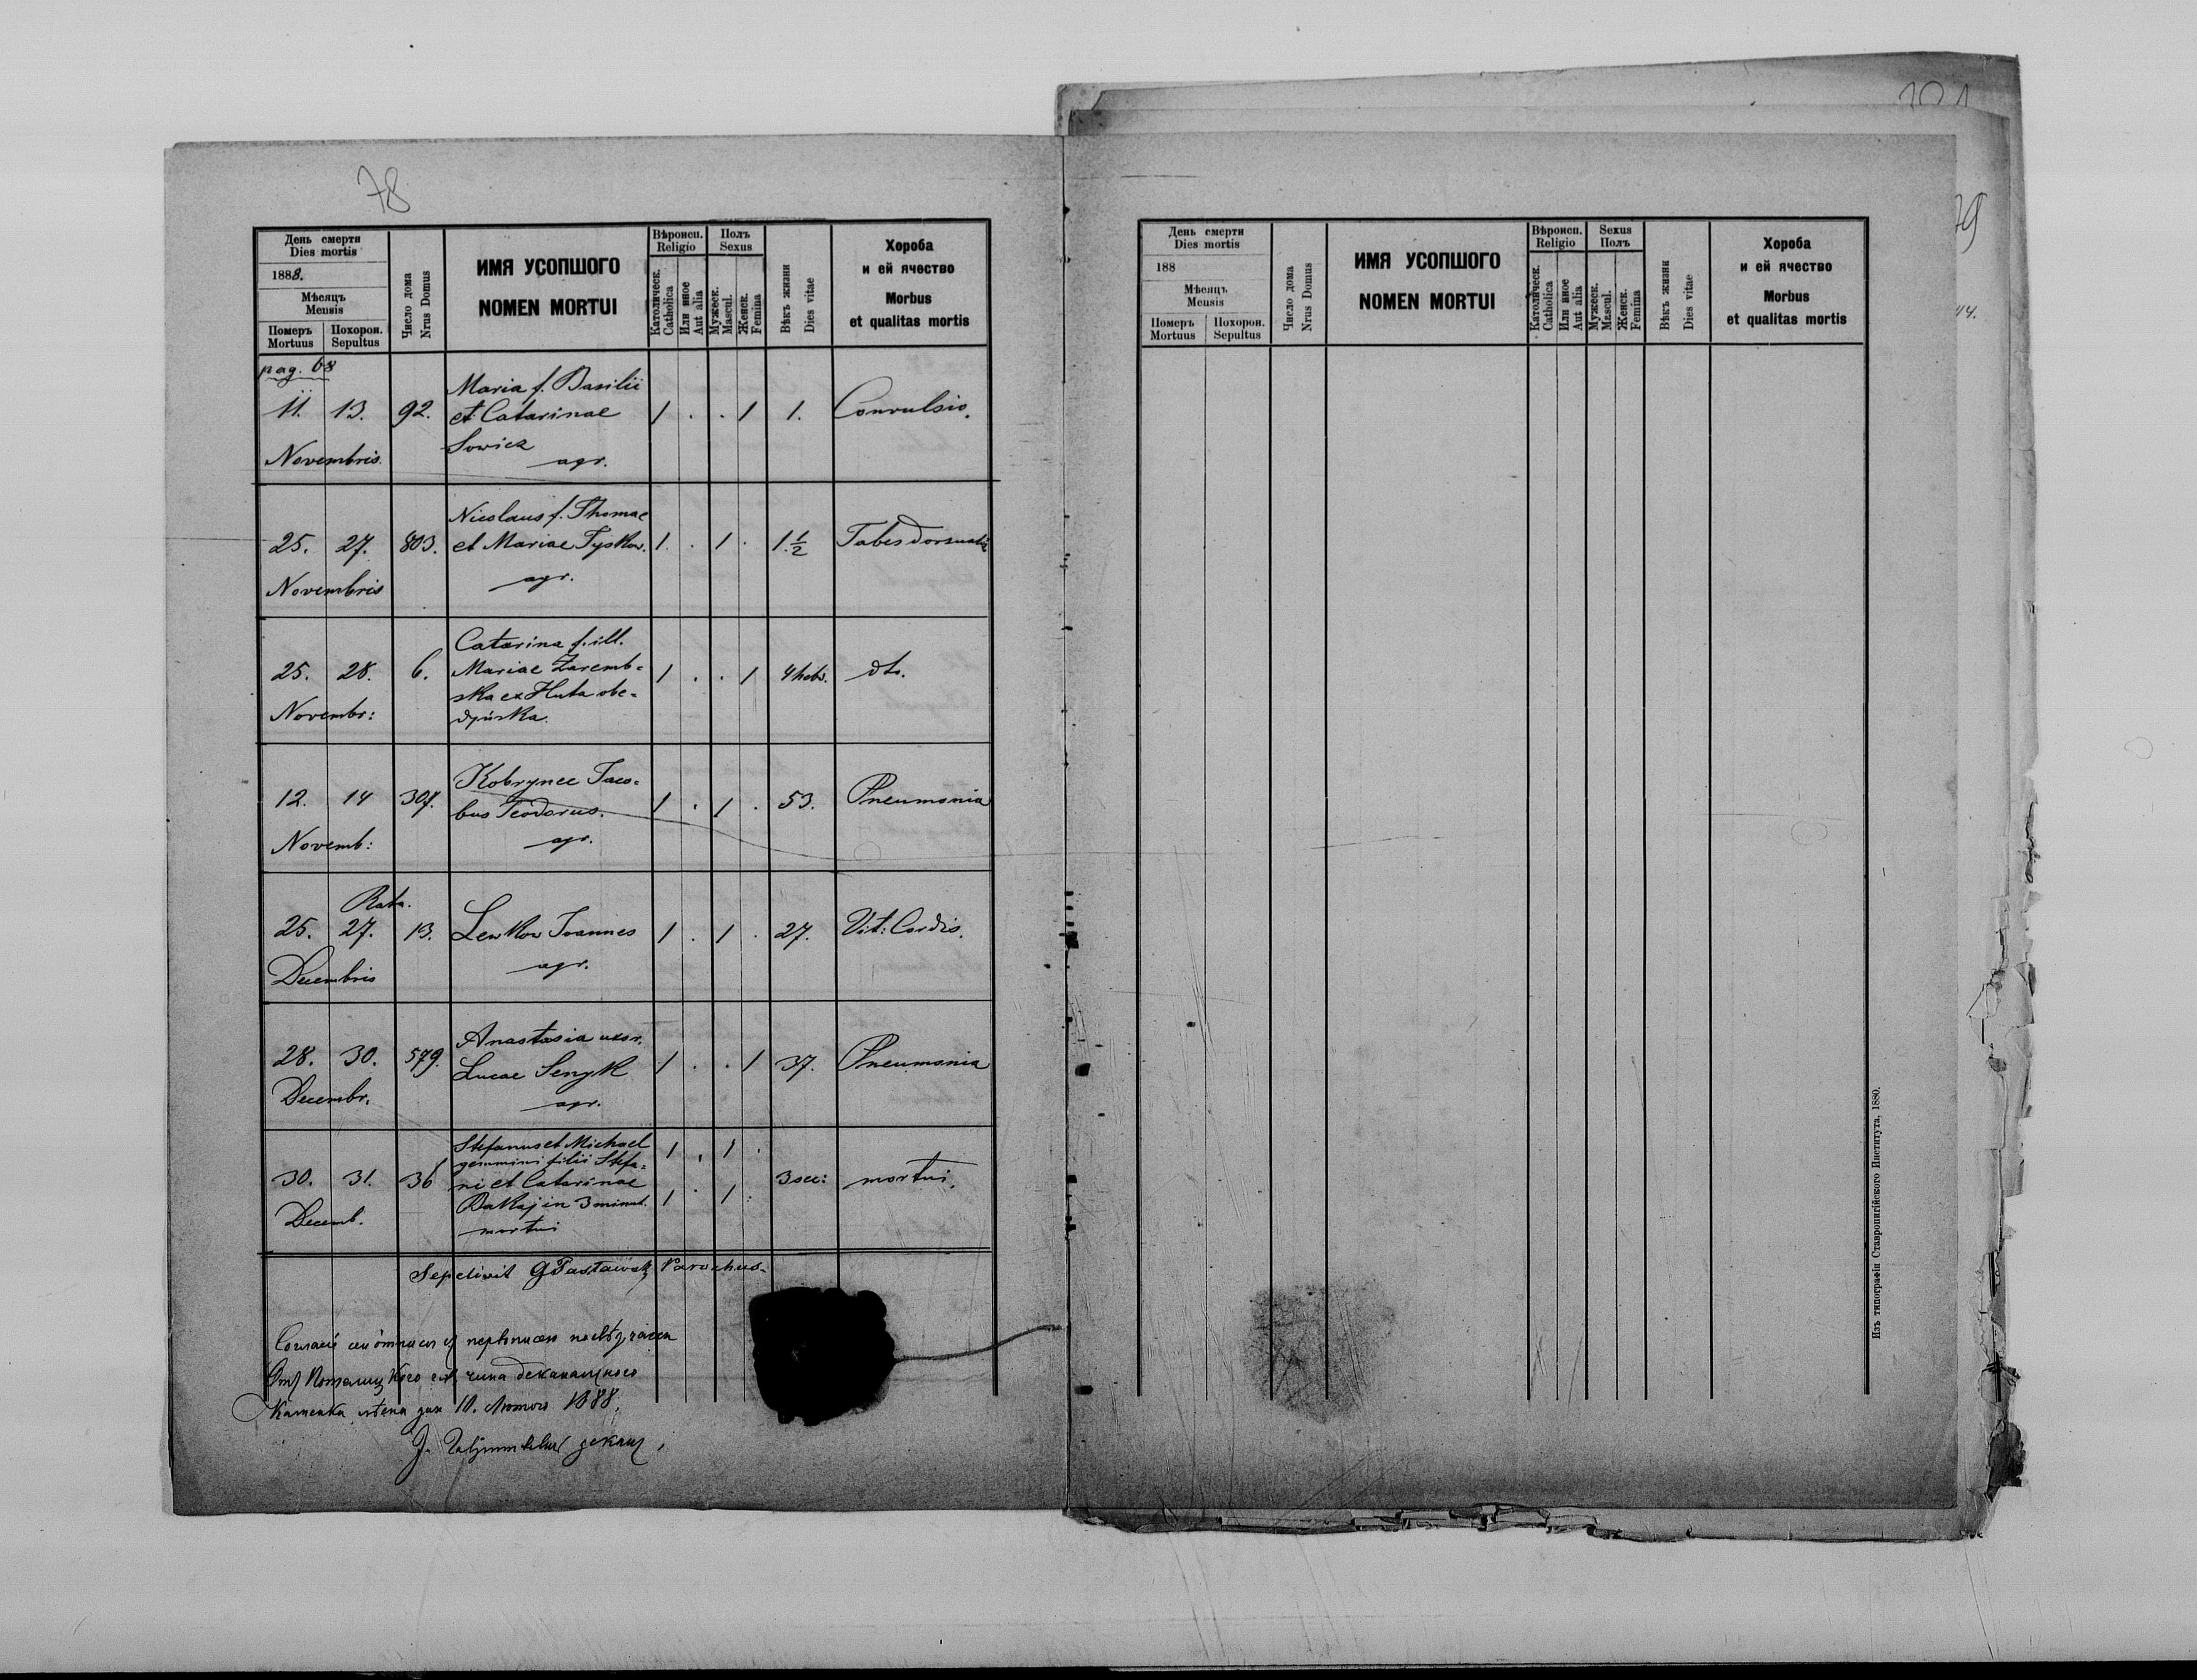 78
День смерти
Dies mortis
1888.
Мѣсяцъ
Mensis
Померъ
Mortuus
Похорон.
Sepultus
Число дома
Nrus Domus
ИМЯ УСОПШОГО
NOMEN MORTUI
Вѣроисп.
Religio
Католическ.
Catholica
Или иное
Aut alia
Полъ
Sexus
Мужеск.
Mascul.
Женск.
Femina
Вѣкъ жизни
Dies vitae
Хороба
и ей ячество
Morbus
et qualitas mortis
pag. 68
11. 13. 92. Maria f. Basilii
et Catarinae
Sowicz
agr.
1 . . 1 1. Convulsio.
Novembris.
25. 27. 803. Nicolaus f. Thomae
et Mariae Tyskow.
agr.
1. . 1 . 1.½ Tabes dorsualis
Novembris
25. 28. 6. Catarina f. ill.
Mariae Zaremb=
ska ex Huta obe=
dyńska.
1 . . 1 4 hebd. dto.
Novembr:
12. 14 307. Kobrynec Jaco=
bus Teodorus.
agr.
1 . 1 . 53. Pneumonia
Novemb:
Rata.
25. 27. 13. Lewkow Joannes
agr.
1 . 1 . 27. Vit: Cordis.
Decembris
28. 30. 579. Anastasia uxor.
Lucae Senyk
agr.
1 . . 1 37. Pneumonia
Decembr.
30. 31. 36 Stefanus et Michael
gemmini filii Stefa=
ni et Catarinae
Bakaj in 3 minut.
mortui
1 . 1 .
1 . 1 .
3 sec: mortui.
Decemb.
Sepelivit Parochus.
деканального
Каменка дня 10. Лютого 1888.
декан
79
День смерти
Dies mortis
188
Мѣсяцъ
Mensis
Померъ
Mortuus
Похорон.
Sepultus
Число дома
Nrus Domus
ИМЯ УСОПШОГО
NOMEN MORTUI
Вѣроисп.
Religio
Католическ.
Catholica
Или иное
Aut alia
Sexus
Полъ
Мужеск.
Mascul.
Женск.
Femina
Вѣкъ жизни
Dies vitae
Хороба
и ей ячество
Morbus
et qualitas mortis
Изъ типографіи Ставропигійского Института, 1880.